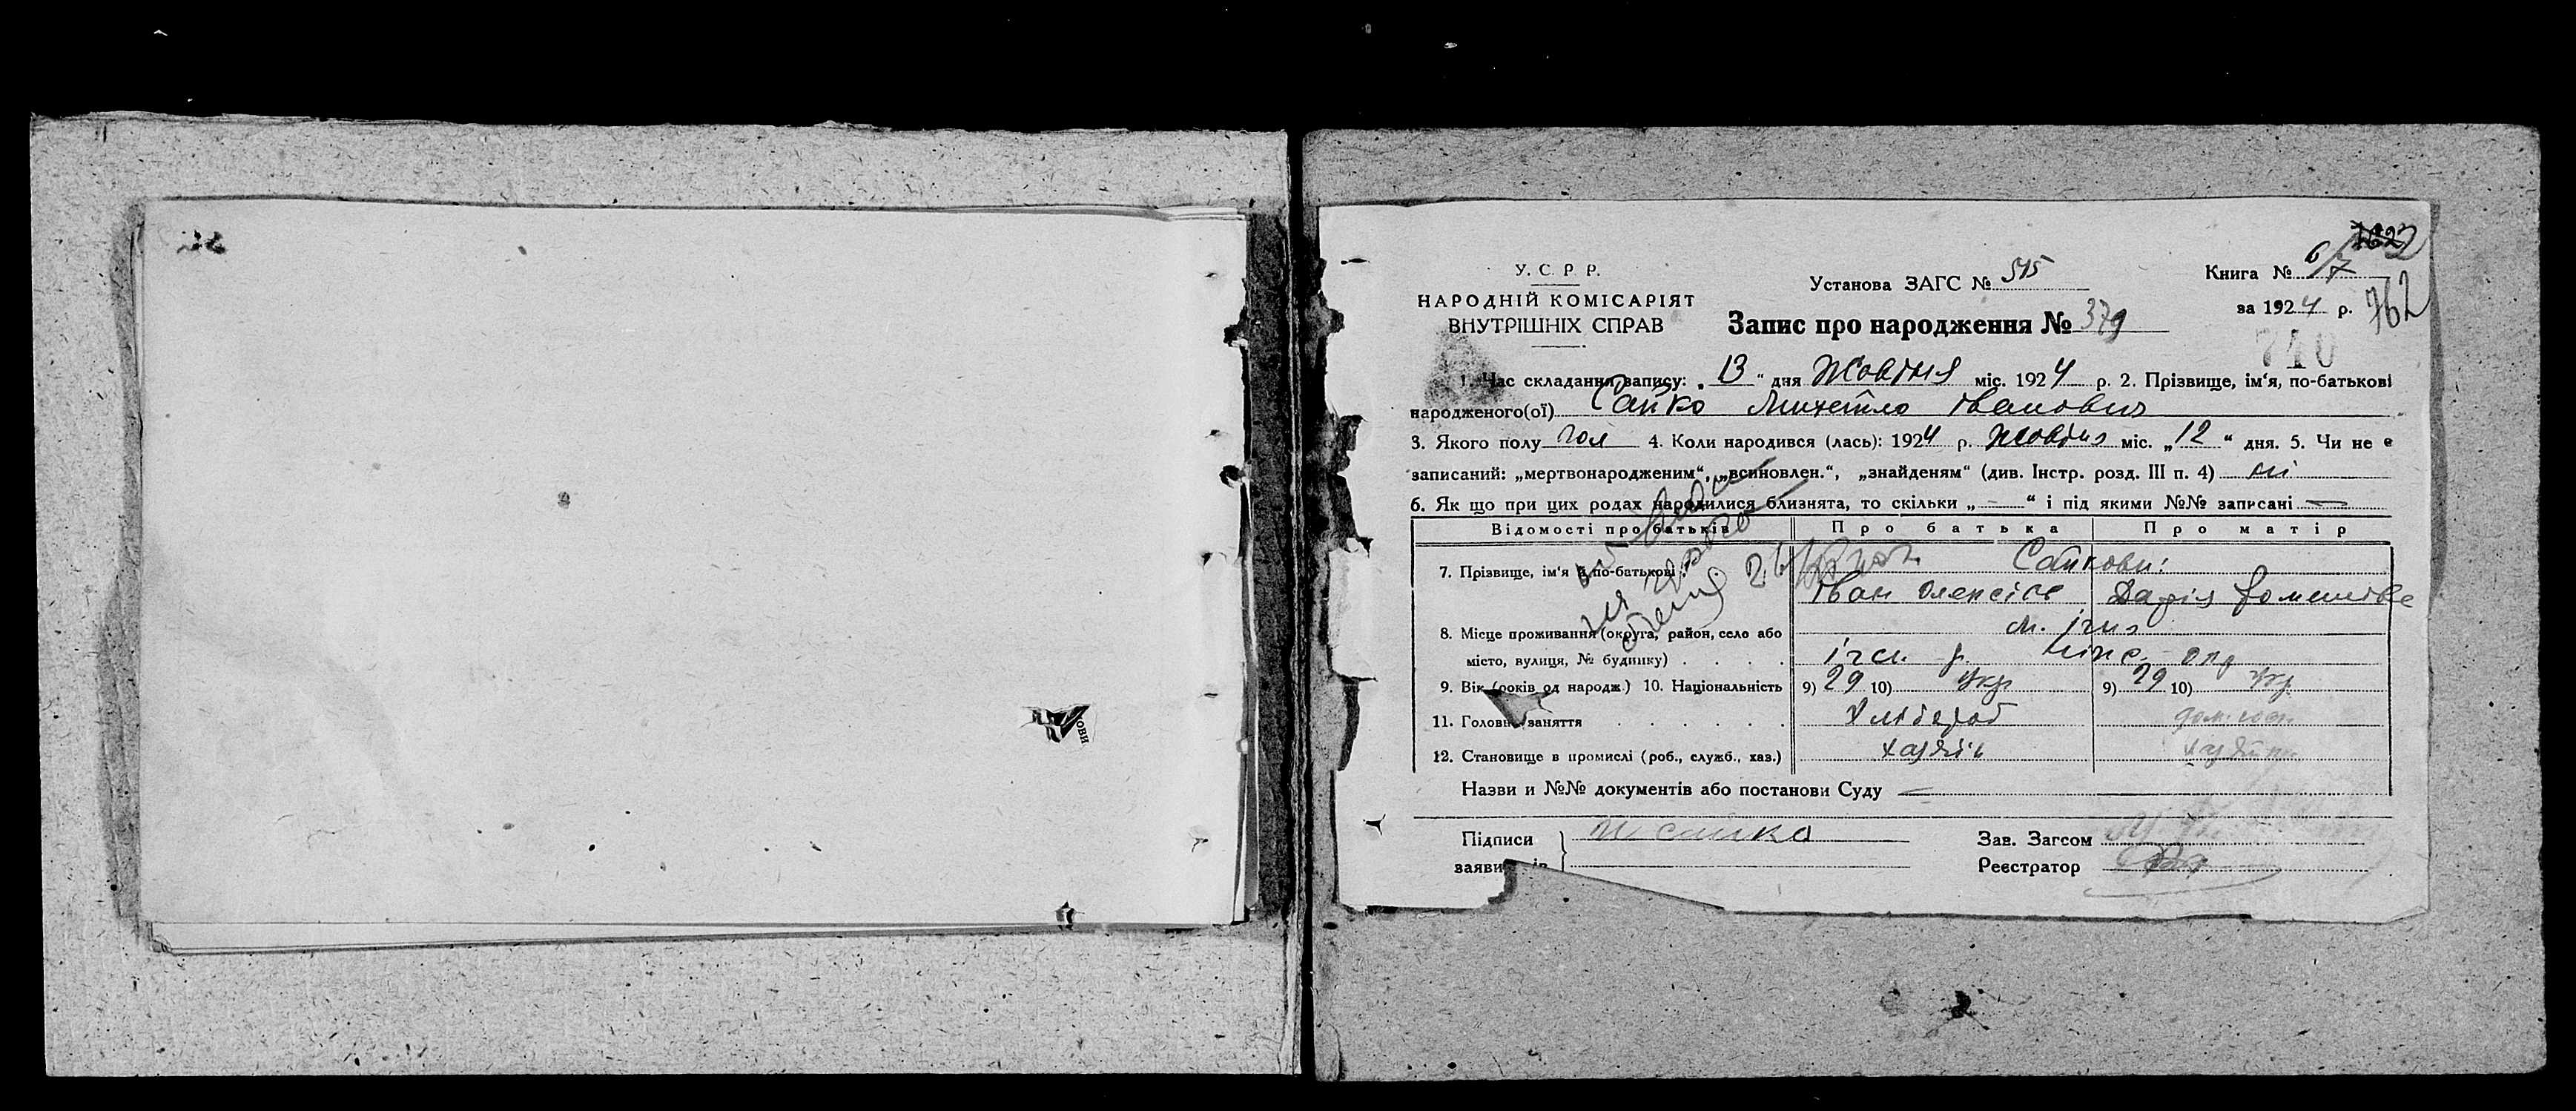 У. С. Р. Р.
НАРОДНІЙ КОМІСАРІЯТ
ВНУТРІШНІХ СПРАВ
Установа ЗАГС № 515
Книга № 6/7
за 1924 р.
762
740
Запис про народження № 379
1. Час складання запису: „13“ дня Жовтня міс. 1924 р. 2. Прізвище, ім‘я, по-батькові
народженого(ої) Сайко Михайло Іванович
3. Якого полу чол 4. Коли народився (лась): 1924 р. Жовтня міс. „12“ дня. 5. Чи не є
записаний: „мертвонародженим“, „всиновлен.“, „знайденям“ (див. Інстр. розд. III п. 4) ні
6. Як що при цих родах народилися близнята, то скільки „—“ і під якими №№ записані —
Відомості про батьків Про батька Про матір
7. Прізвище, ім‘я й по-батькові Сайкови:
Іван Олексієв Дарія
8. Місце проживання (округа, район, село або м. Ічня
місто, вулиця, № будинку) Ічн. р. Ніж. окр
9. Вік (років од народж.) 10. Національність 9) 29 10) Укр 9) 29 10) Укр
11. Головне заняття Хлібороб дом. госп.
12. Становище в промислі (роб., служб., хаз.) хазяїн хазяйка
Назви и №№ документів або постанови Суду —
Підписи Сайко
заяви
Зав. Загсом
Реєстратор
ови